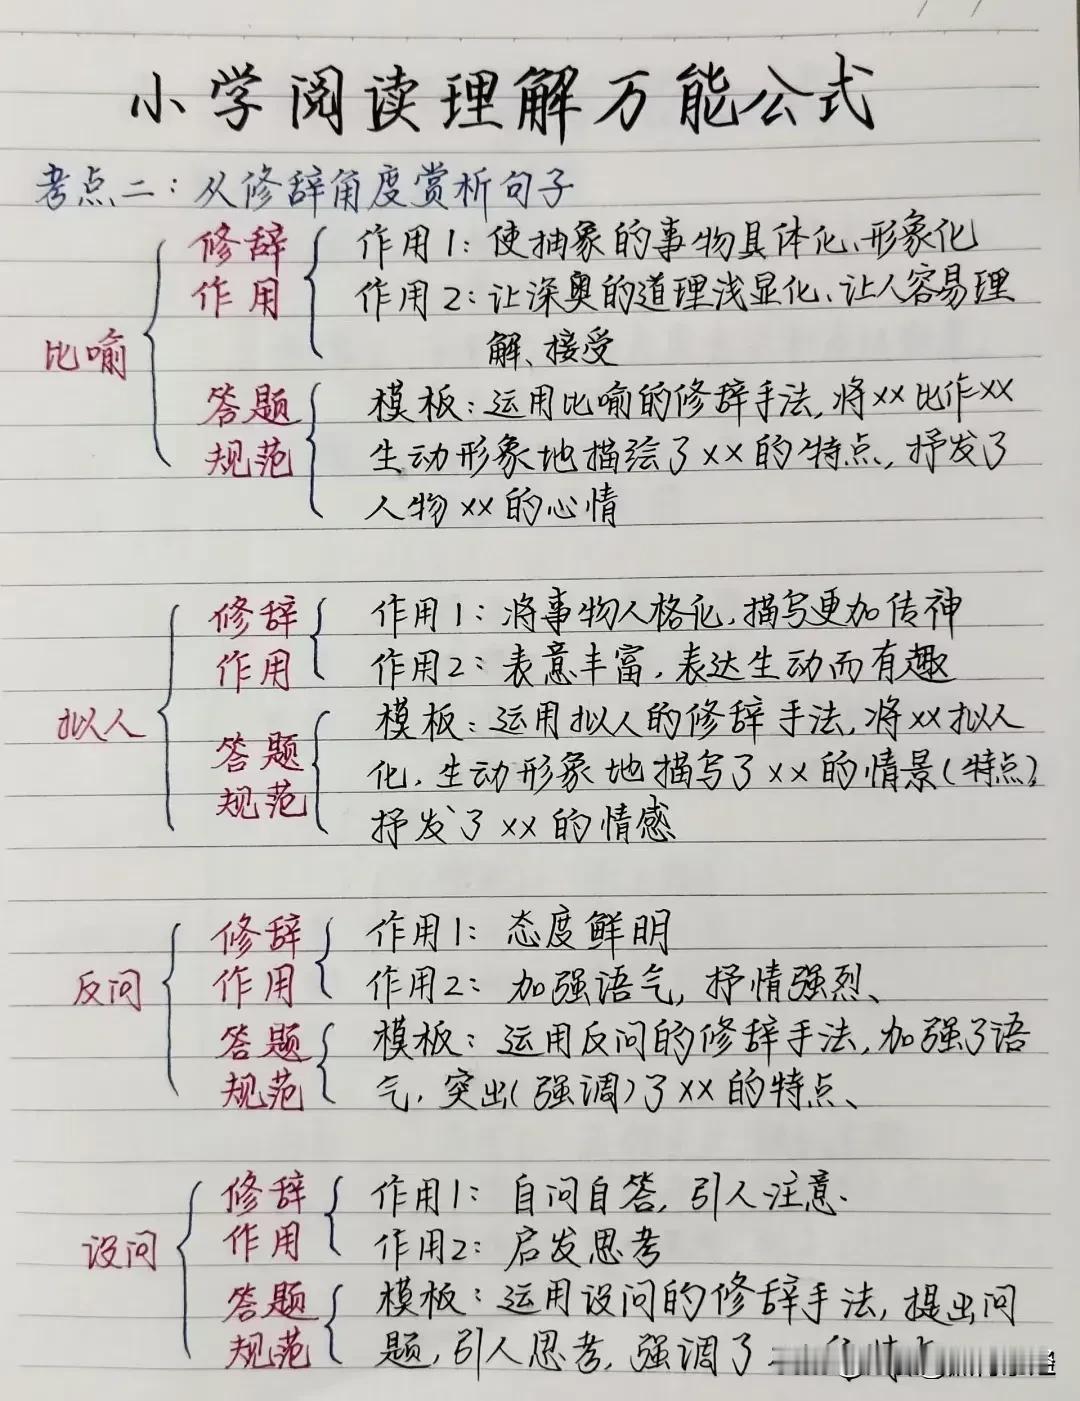 小学阅读理解万能公式
考点二：从修辞角度赏析句子
比喻
修辞
作用
作用1：使抽象的事物具体化、形象化
作用2：让深奥的道理浅显化、让人容易理
解、接受
答题
规范
模板：运用比喻的修辞手法，将xx比作xx
生动形象地描绘了xx的特点，抒发了
人物xx的心情
拟人
修辞
作用
作用1：将事物人格化，描写更加传神
作用2：表意丰富，表达生动而有趣
答题
规范
模板：运用拟人的修辞手法，将xx拟人
化，生动形象地描写了xx的情景（特点），
抒发了xx的情感
反问
修辞
作用
作用1：态度鲜明
作用2：加强语气，抒情强烈、
答题
规范
模板：运用反问的修辞手法，加强了语
气，突出（强调）了xx的特点、
设问
修辞
作用
作用1：自问自答，引人注意.
作用2：启发思考
答题
规范
模板：运用设问的修辞手法，提出问
题，引人思考，强调了